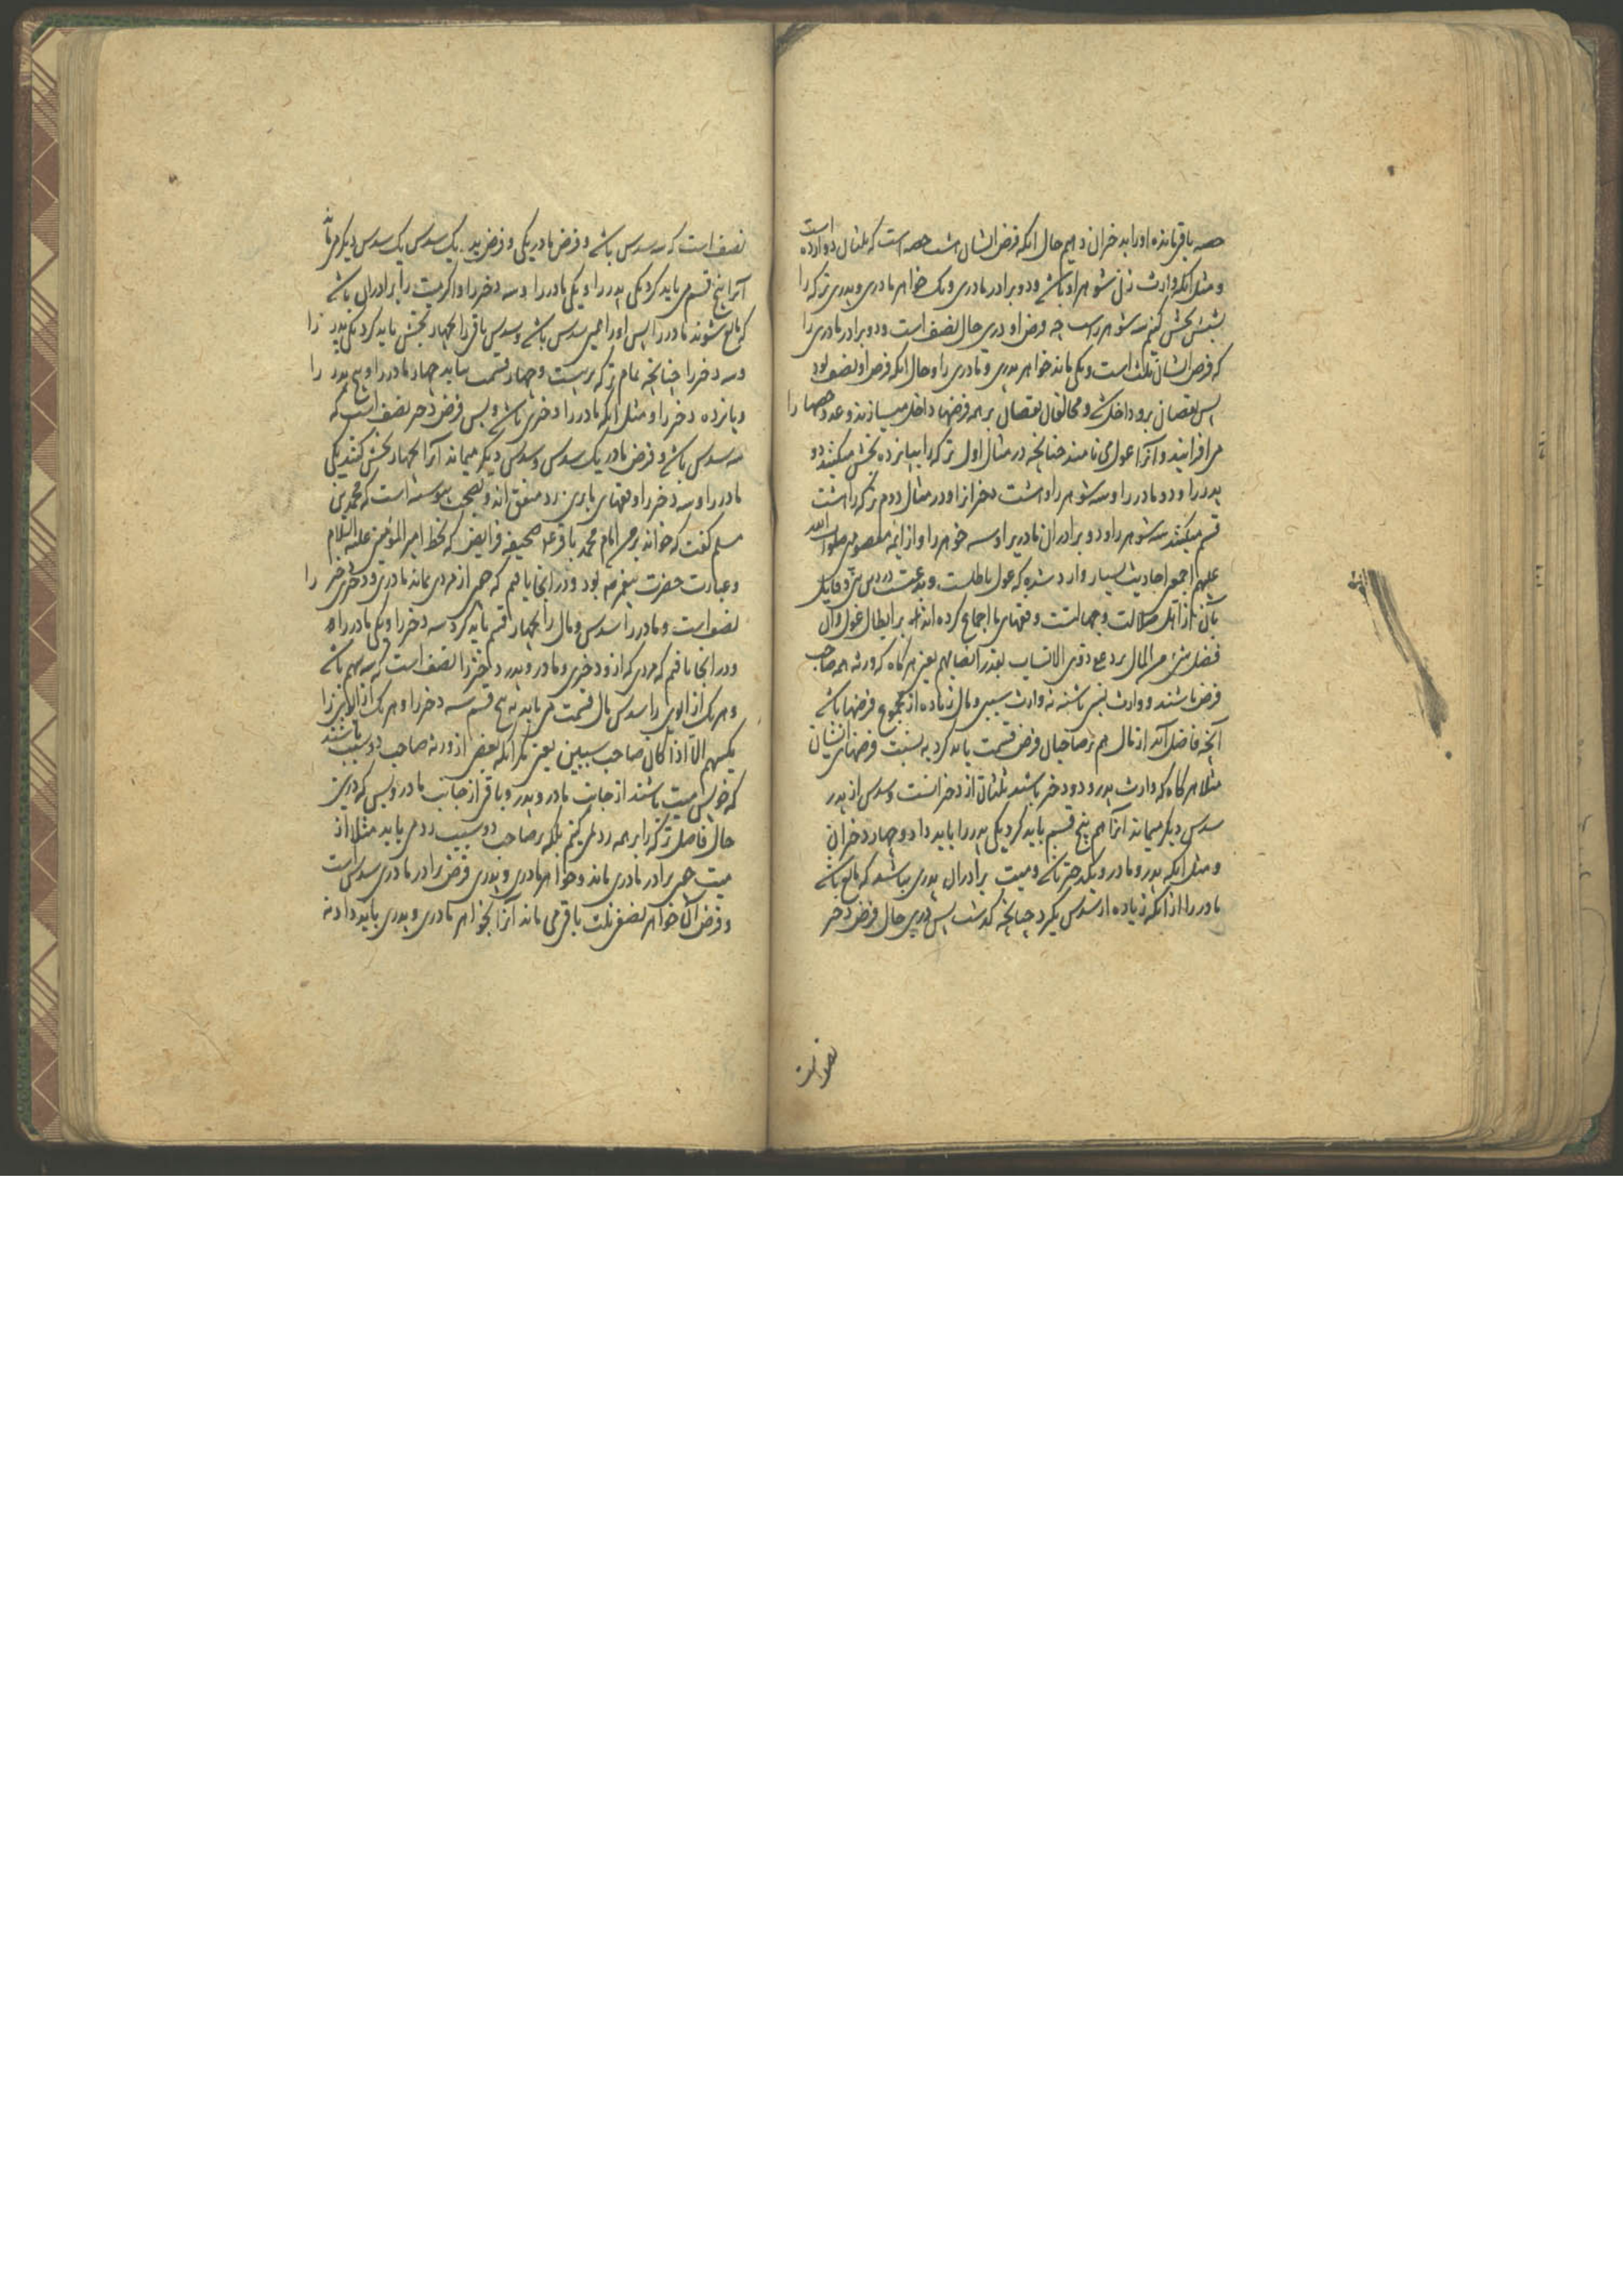 حصه باقی مانده او را بدختران دهیم حال آنکه فرض ایشان هشت حصه است که ثلثان دوازده است
و مثل آنکه وارث زنی شوهر او باشد و دو برادر مادری و یک خواهر مادری و پدری ترکه را
بشش بخش کنیم سه شوهر راست چه فرض او درین حال نصف است و دو برادر مادری را
که فرض ایشان ثلث است و یکی ماند خواهر پدری و مادری را و حال آنکه فرض او نصف بود
پس نقصان برو داخل شد و مخالفان نقصان بر همه فرضها داخل میسازند و عدد حصها را
می افزایند و آنرا عول می نامند چنانچه در مثال اول ترکه را بپانزده بخش میکنند دو
پدر را و دو مادر را و سه شوهر را و هشت دختران را و در مثال دوم ترکه را هشت
قسم میکنند سه شوهر را و دو برادران مادری را و سه خواهر را و از ائمه معصومین صلوات الله
علیهم اجمعین احادیث بسیار وارد شده که عول باطلست و بدعتست در دین نبی و قایل
بآن از اهل ضلالت و جهالتست و فقهای ما اجماع کرده اند بر ابطال عول و ان
فضل شیء من المال یرد علی ذوی الانساب بقدر انصبائهم یعنی هر گاه که ورثه همه صاحب
فرض باشند و وارث نسبی باشند نه وارث سببی و مال زیاده از مجموع فرضها باشد
آنچه فاضل آید از مال هم بر صاحبان فرض قسمت باید کرد به نسبت فرضهای ایشان
مثلا هر گاه که وارث پدر و دو دختر باشند ثلثان از دخترانست و سدس از پدر
سدس دیگر میماند آنرا هم پنج قسم باید کرد یکی پدر را باید داد و چهار دختران
و مثل آنکه پدر و مادر و یکدختر باشد و میت برادران پدری نباشد که مانع باشد
مادر را از آنکه زیاده از سدس بگیرد چنانچه گذشت پس درین حال فرض دختر
نصف است
نصف است که سه سدس باشد و فرض مادر یکی و فرض پدر یک سدس یک سدس دیگر می ماند
آنرا پنج قسم می باید کرد یکی پدر را و یکی مادر را و سه دختر را و اگر میت را برادران باشد
که مانع شوند مادر را پس او را همین سدس باشد و سدس باقی را بچهار بخش باید کرد یکی پدر را
و سه دختر را چنانچه تمام ترکه بر بیست و چهار قسمت بیابد چهار مادر را و پنج پدر را
و پانزده دختر را و مثل آنکه مادر را و دختری باشد و بس فرض دختر نصف است که
سه سدس باشد و فرض مادر یک سدس و دو سدس دیگر میماند آنرا بچهار بخش کنند یکی
مادر را و سه دختر را و فقهای ما برین رد متفق اند و بصحت پیوسته است که محمد بن
مسلم گفت که خواند بر من امام محمد باقر ع صحیفه فرایض که بخط امیر المؤمنین علیه السلام
و عبارت حضرت پیغمبر ص بود و در آنجا یافتم که چون از مردی بماند مادری و دختری دختر را
نصف است و مادر را سدس و مال را بچهار قسم باید کرد سه دختر را و یکی مادر را و
و در آنجا یافتم که مردی که از و دختری و مادر و پدر دختر را نصف است که سه سهم باشد
و هر یک از ابوین را سدس مال قسمت می یابد به پنج قسم سه دختر را و هر یک از ابوین را
یکسهم الا اذا کان صاحب سببین یعنی مگر آنکه بعضی از ورثه صاحب دو سبب باشند
که خویش میت باشند از جانب مادر و پدر و باقی از جانب مادر و بس که درین
حال فاضل ترکه را بر همه رد نمی کنیم بلکه بر صاحب دو سبب رد می یابد مثلا از
میت چون برادر مادری ماند و خواهر مادری و پدری فرض برادر مادری سدس است
و فرض آن خواهر نصف ثلث باقی می ماند آنرا بخواهر مادری و پدری باید داد نه